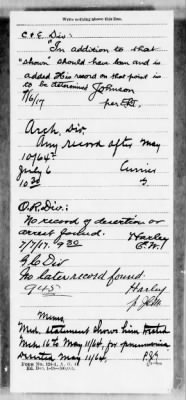 Write nothing above this line.
C & E. Div:
"In addition to that
"shown" should have been and is
added. His record on that point is
to be determined Johnson
7/6/17 per
Arch. Div.
Any record after May
10/64?
July 6 Currier
10 30
O.R. Div:
No record of desertion or
arrest found. Harley
7/7/17. 9 30
G.C. Div
No later record found.
9 45 Harley
Mem
Med. statement shows him
Mch. 16 to May 11/64, for pneumonia
May 11/64.